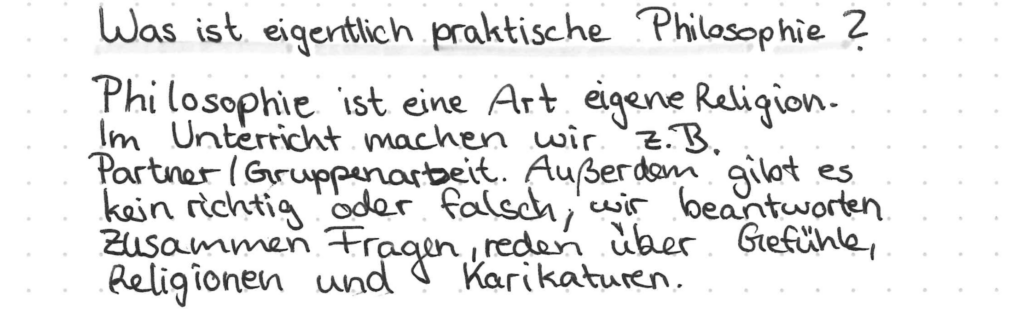 Was ist eigentlich praktische Philosophie?
Philosophie ist eine Art eigene Religion.
Im Unterricht machen wir z.B.
Partner/Gruppenarbeit. Außerdem gibt es
kein richtig oder falsch, wir beantworten
zusammen Fragen, reden über Gefühle,
Religionen und Karikaturen.